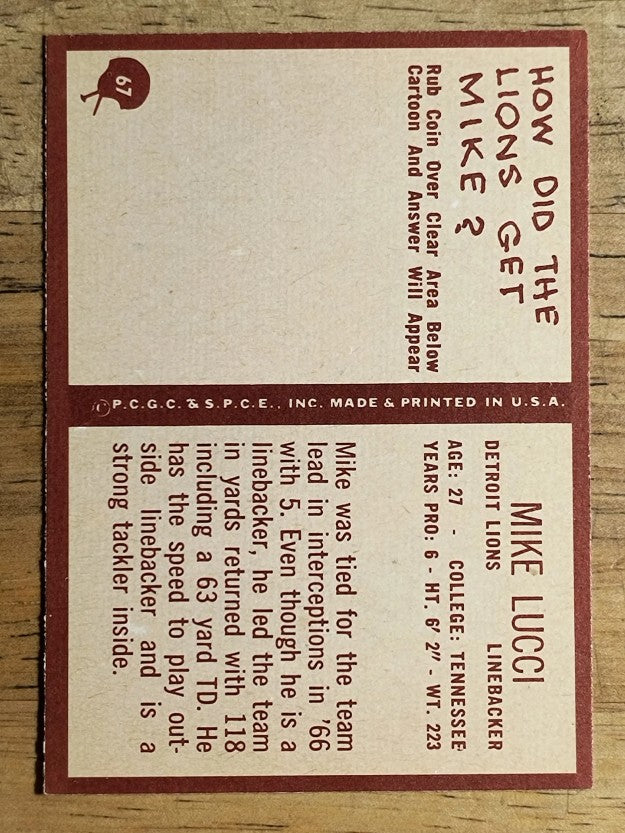 67
HOW DID THE
LIONS GET
MIKE ?
Rub Coin Over Clear Area Below
Cartoon And Answer Will Appear
© P.C.G.C. & S.P.C.E., INC. MADE & PRINTED IN U.S.A.
MIKE LUCCI
DETROIT LIONS LINEBACKER
AGE: 27 - COLLEGE: TENNESSEE
YEARS PRO: 6 - HT. 6' 2" - WT. 223
Mike was tied for the team
lead in interceptions in '66
with 5. Even though he is a
linebacker, he led the team
in yards returned with 118
including a 63 yard TD. He
has the speed to play out-
side linebacker and is a
strong tackler inside.